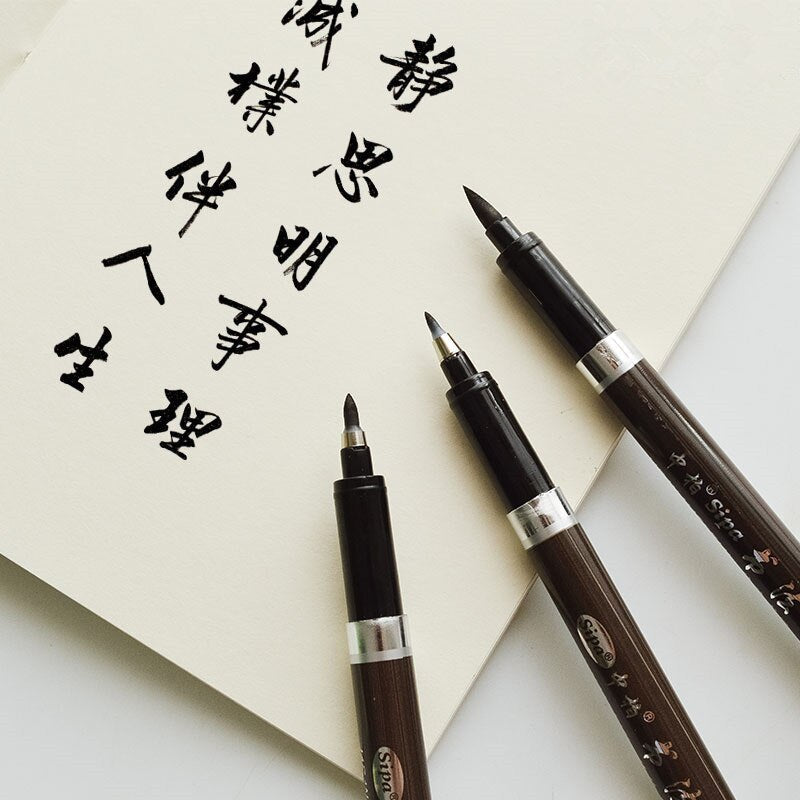 静思明事理
樸伴人生
Sipa
Sipa® 中柏® 书法
中柏® Sipa 书法